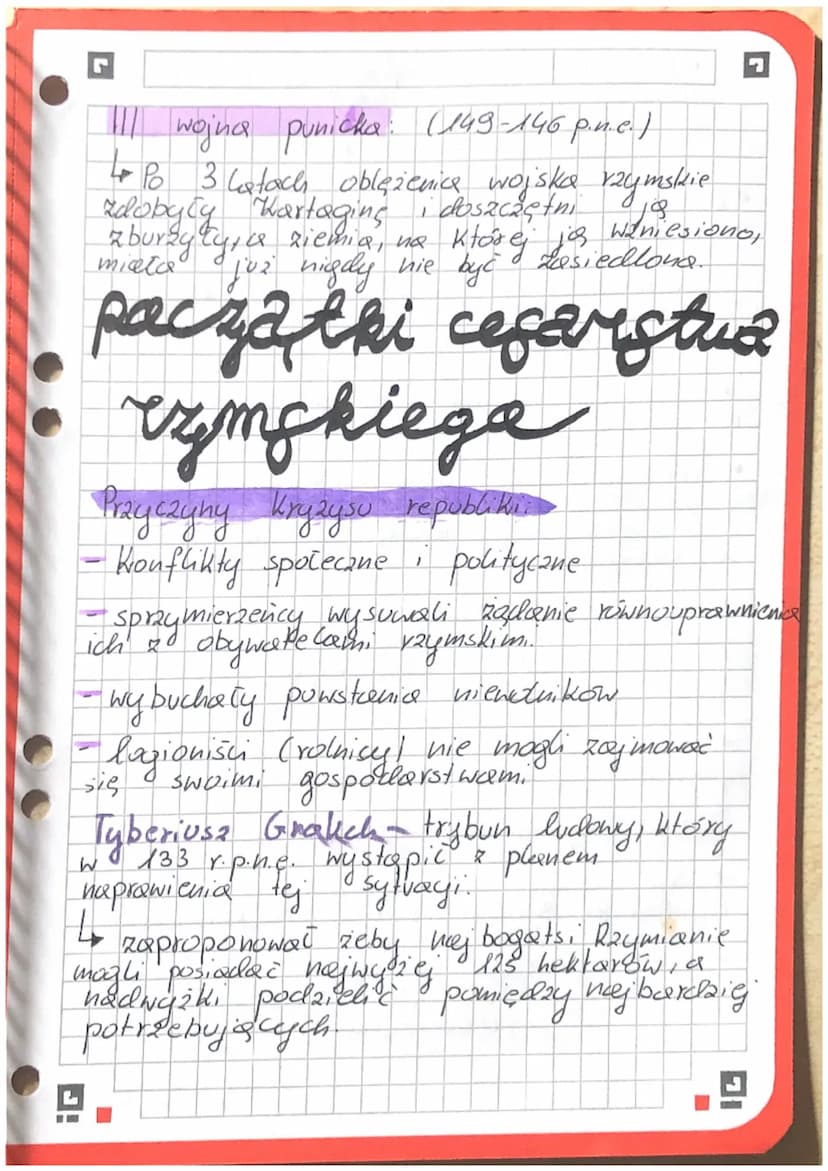 III wojna punicka: (149-146 p.n.e.)
↳ Po 3 latach oblężenia wojska rzymskie
zdobyły Kartaginę i doszczętni ją
zburzyły, a ziemia, na której ją wzniesiono,
miała już nigdy nie być zasiedlona.
początki cesarstwa
rzymskiego
Przyczyny kryzysu republiki:
- Konflikty społeczne i polityczne
- sprzymierzeńcy wysuwali żądanie równouprawnienia
ich z obywatelami rzymskimi.
- wybuchały powstania niewolników
- legioniści (rolnicy) nie mogli zajmować
się swoimi gospodarstwami.
Tyberiusz Grakch - trybun ludowy, który
w 133 r.p.n.e. wystąpił z planem
naprawienia tej sytuacji.
↳ zaproponował żeby najbogatsi Rzymianie
mogli posiadać najwyżej 125 hektarów, a
nadwyżki podzielić pomiędzy najbardziej
potrzebujących.